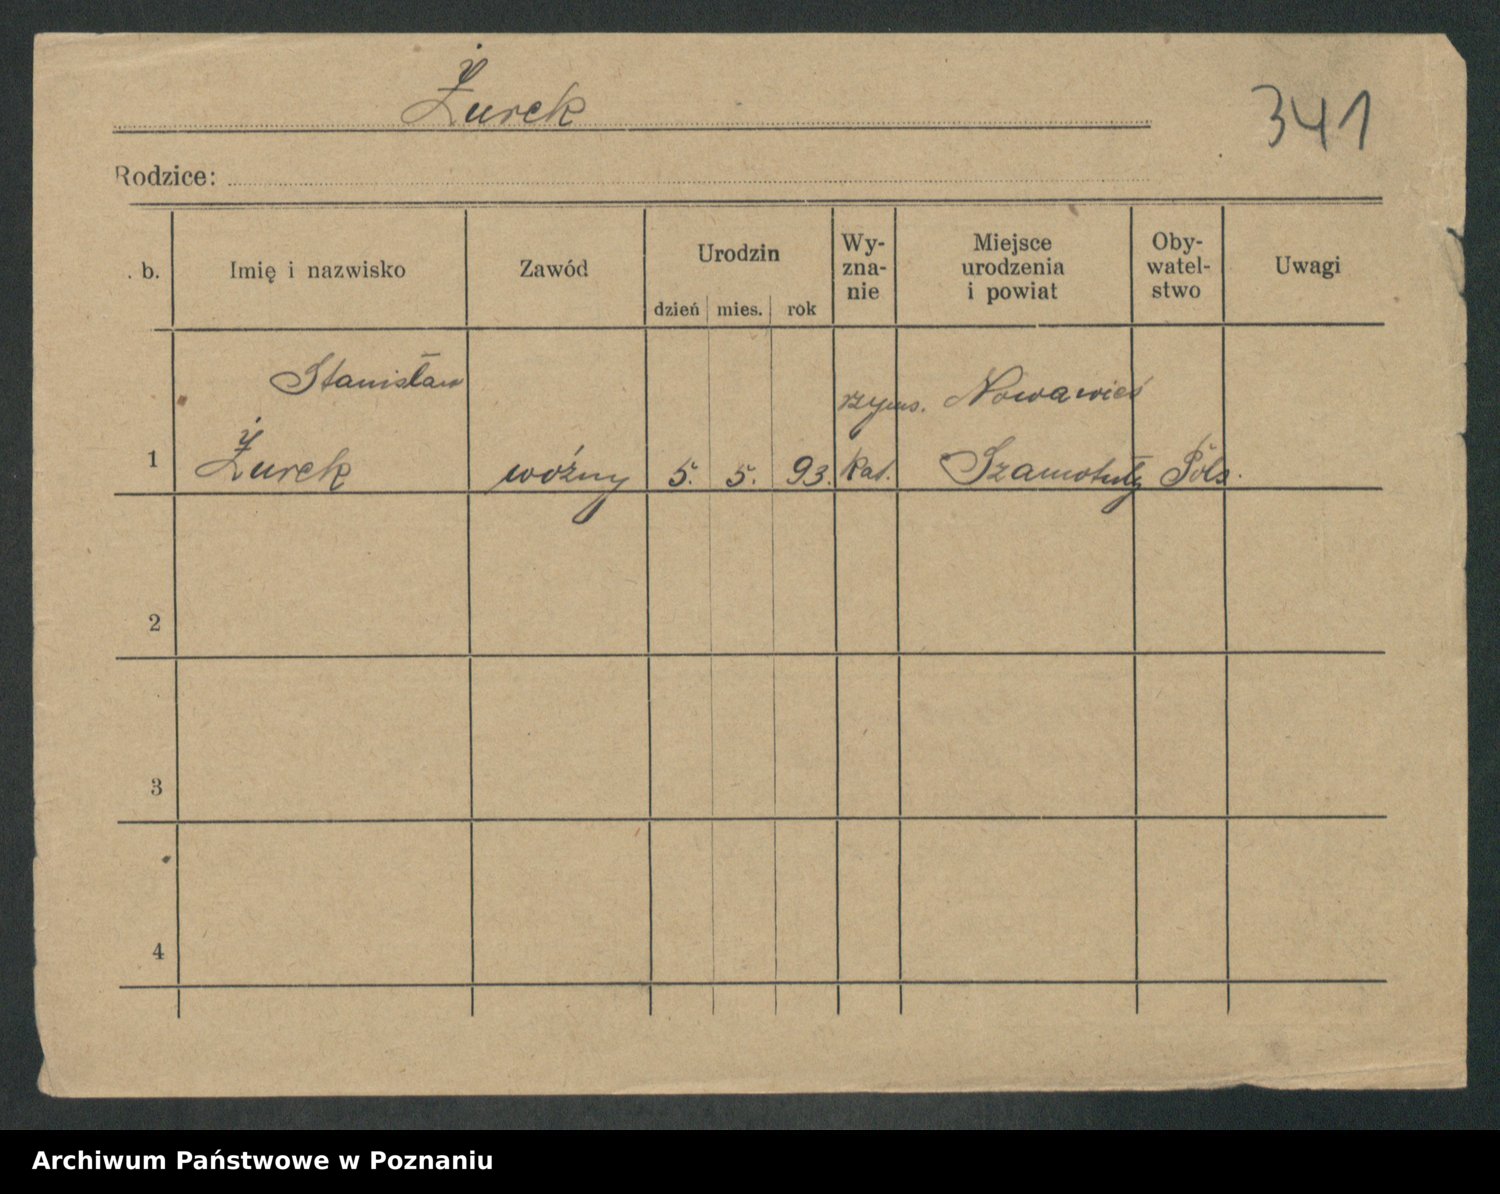 Żurek
341
Rodzice:
. b.
Imię i nazwisko
Zawód
Urodzin
dzień mies. rok
Wy-
zna-
nie
Miejsce
urodzenia
i powiat
Oby-
watel-
stwo
Uwagi
Stanisław rzyms. Nowawieś
1 Żurek woźny 5. 5. 93. kat. Szamotuły Pols.
2
3
4
Archiwum Państwowe w Poznaniu